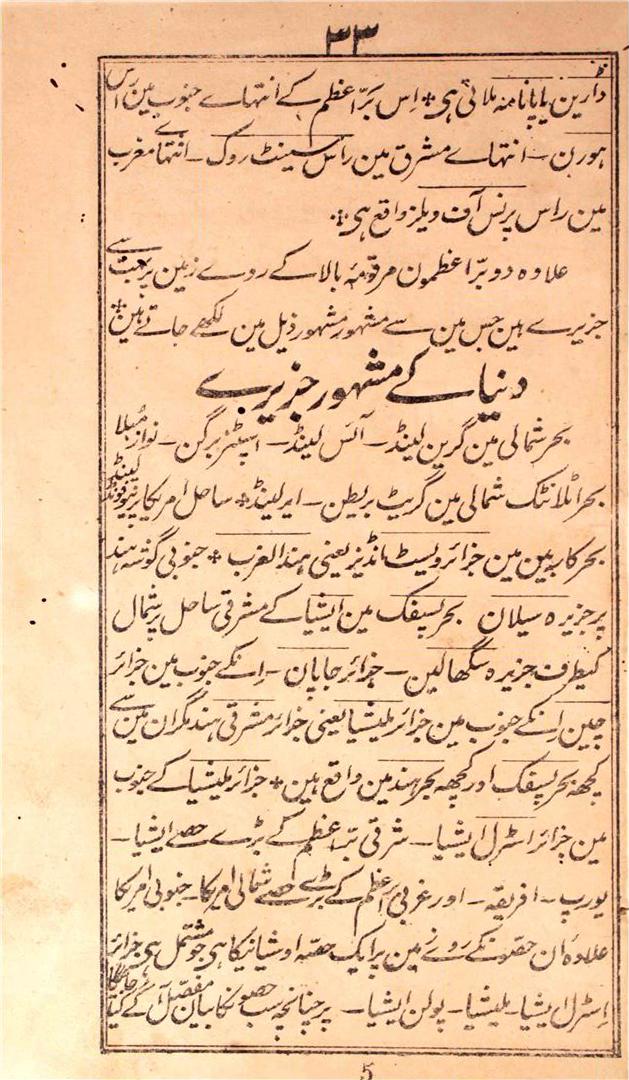 ۳۳
دارین یا پانامہ ملاتی ہی ؞ اِس بَرِّ اعظم کے انتہاے جنوب مین راس
ہورن ـ انتہاے مشرق مین راس سینٹ روک ـ انتہاے مغرب
مین راس پرنس آف ویلز واقع ہی ؞
علاوہ دو برِّ اعظمون مرقومۂ بالا کے روے زمین پر بہت سے
جزیرے ہین جس مین سے مشہور مشہور ذیل مین لکھے جاتے ہین ؞
دنیا کے مشہور جزیرے
بحر شمالی مین گرین لینڈ ـ آئس لینڈ ـ اسپٹنز برگن ـ نوازمبلا
بحر اٹلانٹک شمالی مین گریٹ بریطن ـ ایرلینڈ ؞ ساحل امریکا پر نیوفونڈلینڈ
بحر کاریبین مین جزائر ویسٹ انڈیز یعنی ہند الغرب ؞ جنوبی گوشہ ہند
پر جزیرہ سیلان بحر پسفک مین ایشیا کے مشرقی ساحل پر شمال
کیطرف جزیرہ سگھالین ـ جزائر جاپان ـ اِنکے جنوب مین جزائر
چین اِنکے جنوب مین جزائر ملیشیا یعنی جزائر مشرقی ہند مگر ان مین سے
کچھہ بحر پسفک اور کچھہ بحر ہند مین واقع ہین ؞ جزائر ملیشیا کے جنوب
مین جزائر اسٹرل ایشیا ـ شرقی برِّ اعظم کے بڑے حصے ایشیا ـ
یورپ ـ افریقہ ـ اور غربی برِّ اعظم کے بڑے حصے شمالی امریکا ـ جنوبی امریکا
علاوہ اُن حصونکے روے زمین پر ایک حصہ اوشیانیکا ہی جو مشتمل ہی جزائر
اِسٹرل ایشیا ـ ملیشیا ـ پولن ایشیا ـ پر چنانچہ سب حصونکا بیان مفصّل آگے کیا جائیگا
5